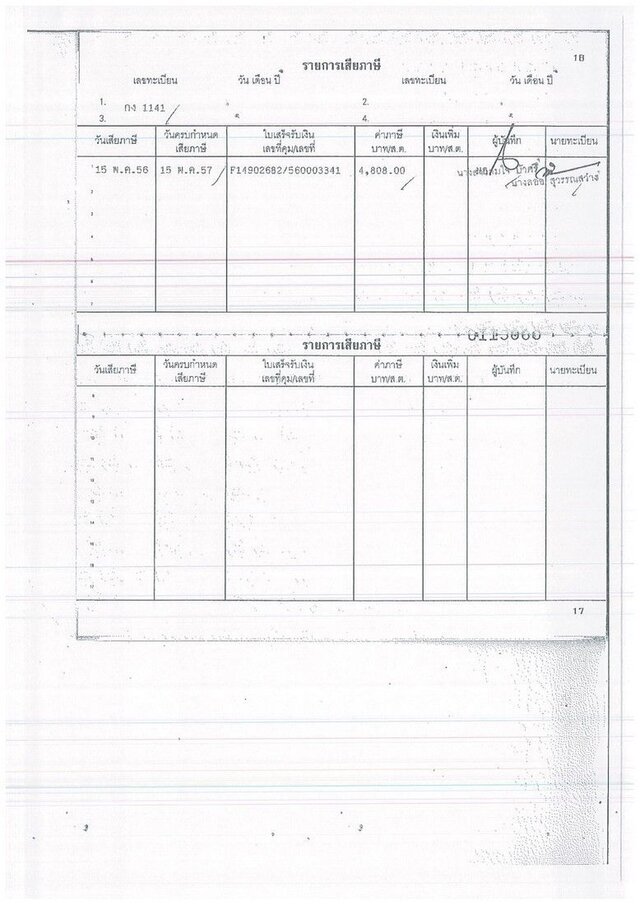 รายการเสียภาษี
18
เลขทะเบียน วัน เดือน ปี เลขทะเบียน วัน เดือน ปี
1. กง 1141 2.
3. 4.
วันเสียภาษี วันครบกำหนดเสียภาษี ใบเสร็จรับเงิน เลขที่คุม/เลขที่ ค่าภาษี บาท/ส.ต. เงินเพิ่ม บาท/ส.ต. ผู้บันทึก นายทะเบียน
15 พ.ค.56 15 พ.ค.57 F14902682/560003341 4,808.00
2
3
4
5
6
7
รายการเสียภาษี
วันเสียภาษี วันครบกำหนดเสียภาษี ใบเสร็จรับเงิน เลขที่คุม/เลขที่ ค่าภาษี บาท/ส.ต. เงินเพิ่ม บาท/ส.ต. ผู้บันทึก นายทะเบียน
8
9
10
11
12
13
14
15
16
17
17